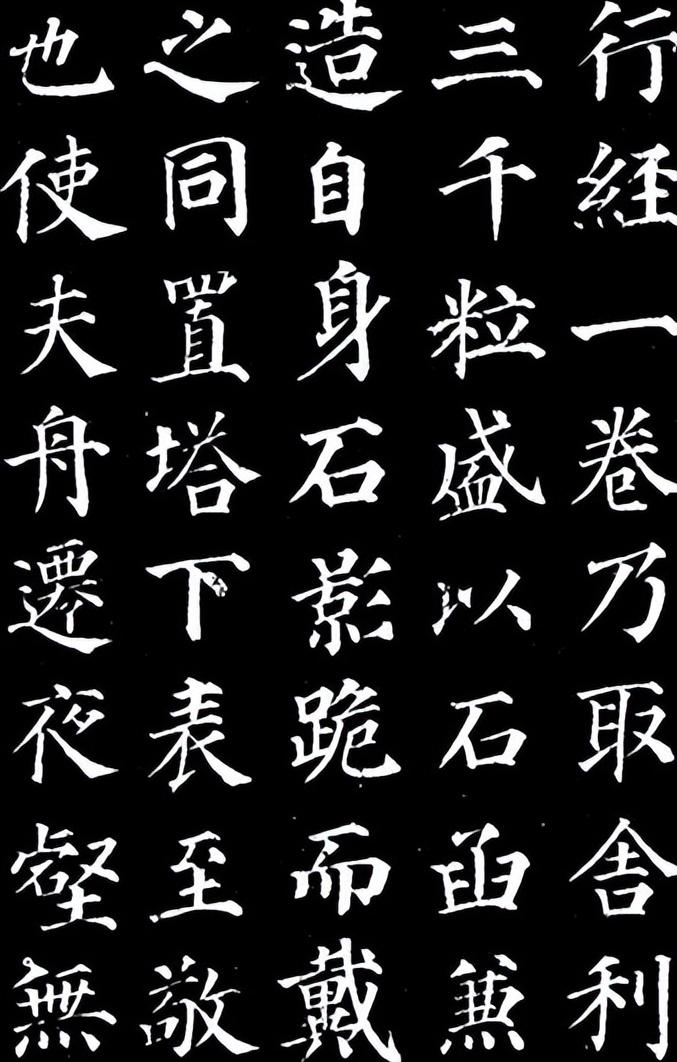 行經一卷乃取舍利
三千粒盛以石函兼
造自身石影跪而戴
之同置塔下表至敬
也使夫舟遷夜壑無